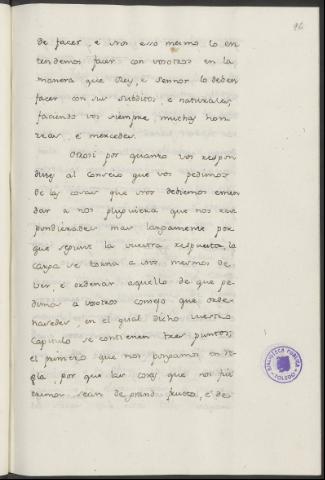 96
de facer, e nos esso mesmo lo en
tendemos facer con vosotros en la
manera que Rey, e Sennor lo deben
facer con sus subditos, e naturales,
faciendo vos siempre muchas hon
rras, e mercedes.
Otrosi por quanto vos respon
distes al consejo que vos pedimos
de las cosas que nos debiemos emen
dar a nos pluguiera que nos res
pondierades mas largamente por
que segunt la vuestra respuesta, la
carga se torna a nos mesmos de
ver, e ordenar aquello de que pe
dimos a vosotros consejo que orde
nasedes, en el qual dicho vuestro
Capitulo se contienen tres puntos,
el primero que nos pongamos en re
gla, por que las cosas que nos fi
cieremos sean de grand justa, e de
BIBLIOTECA PUBLICA
TOLEDO